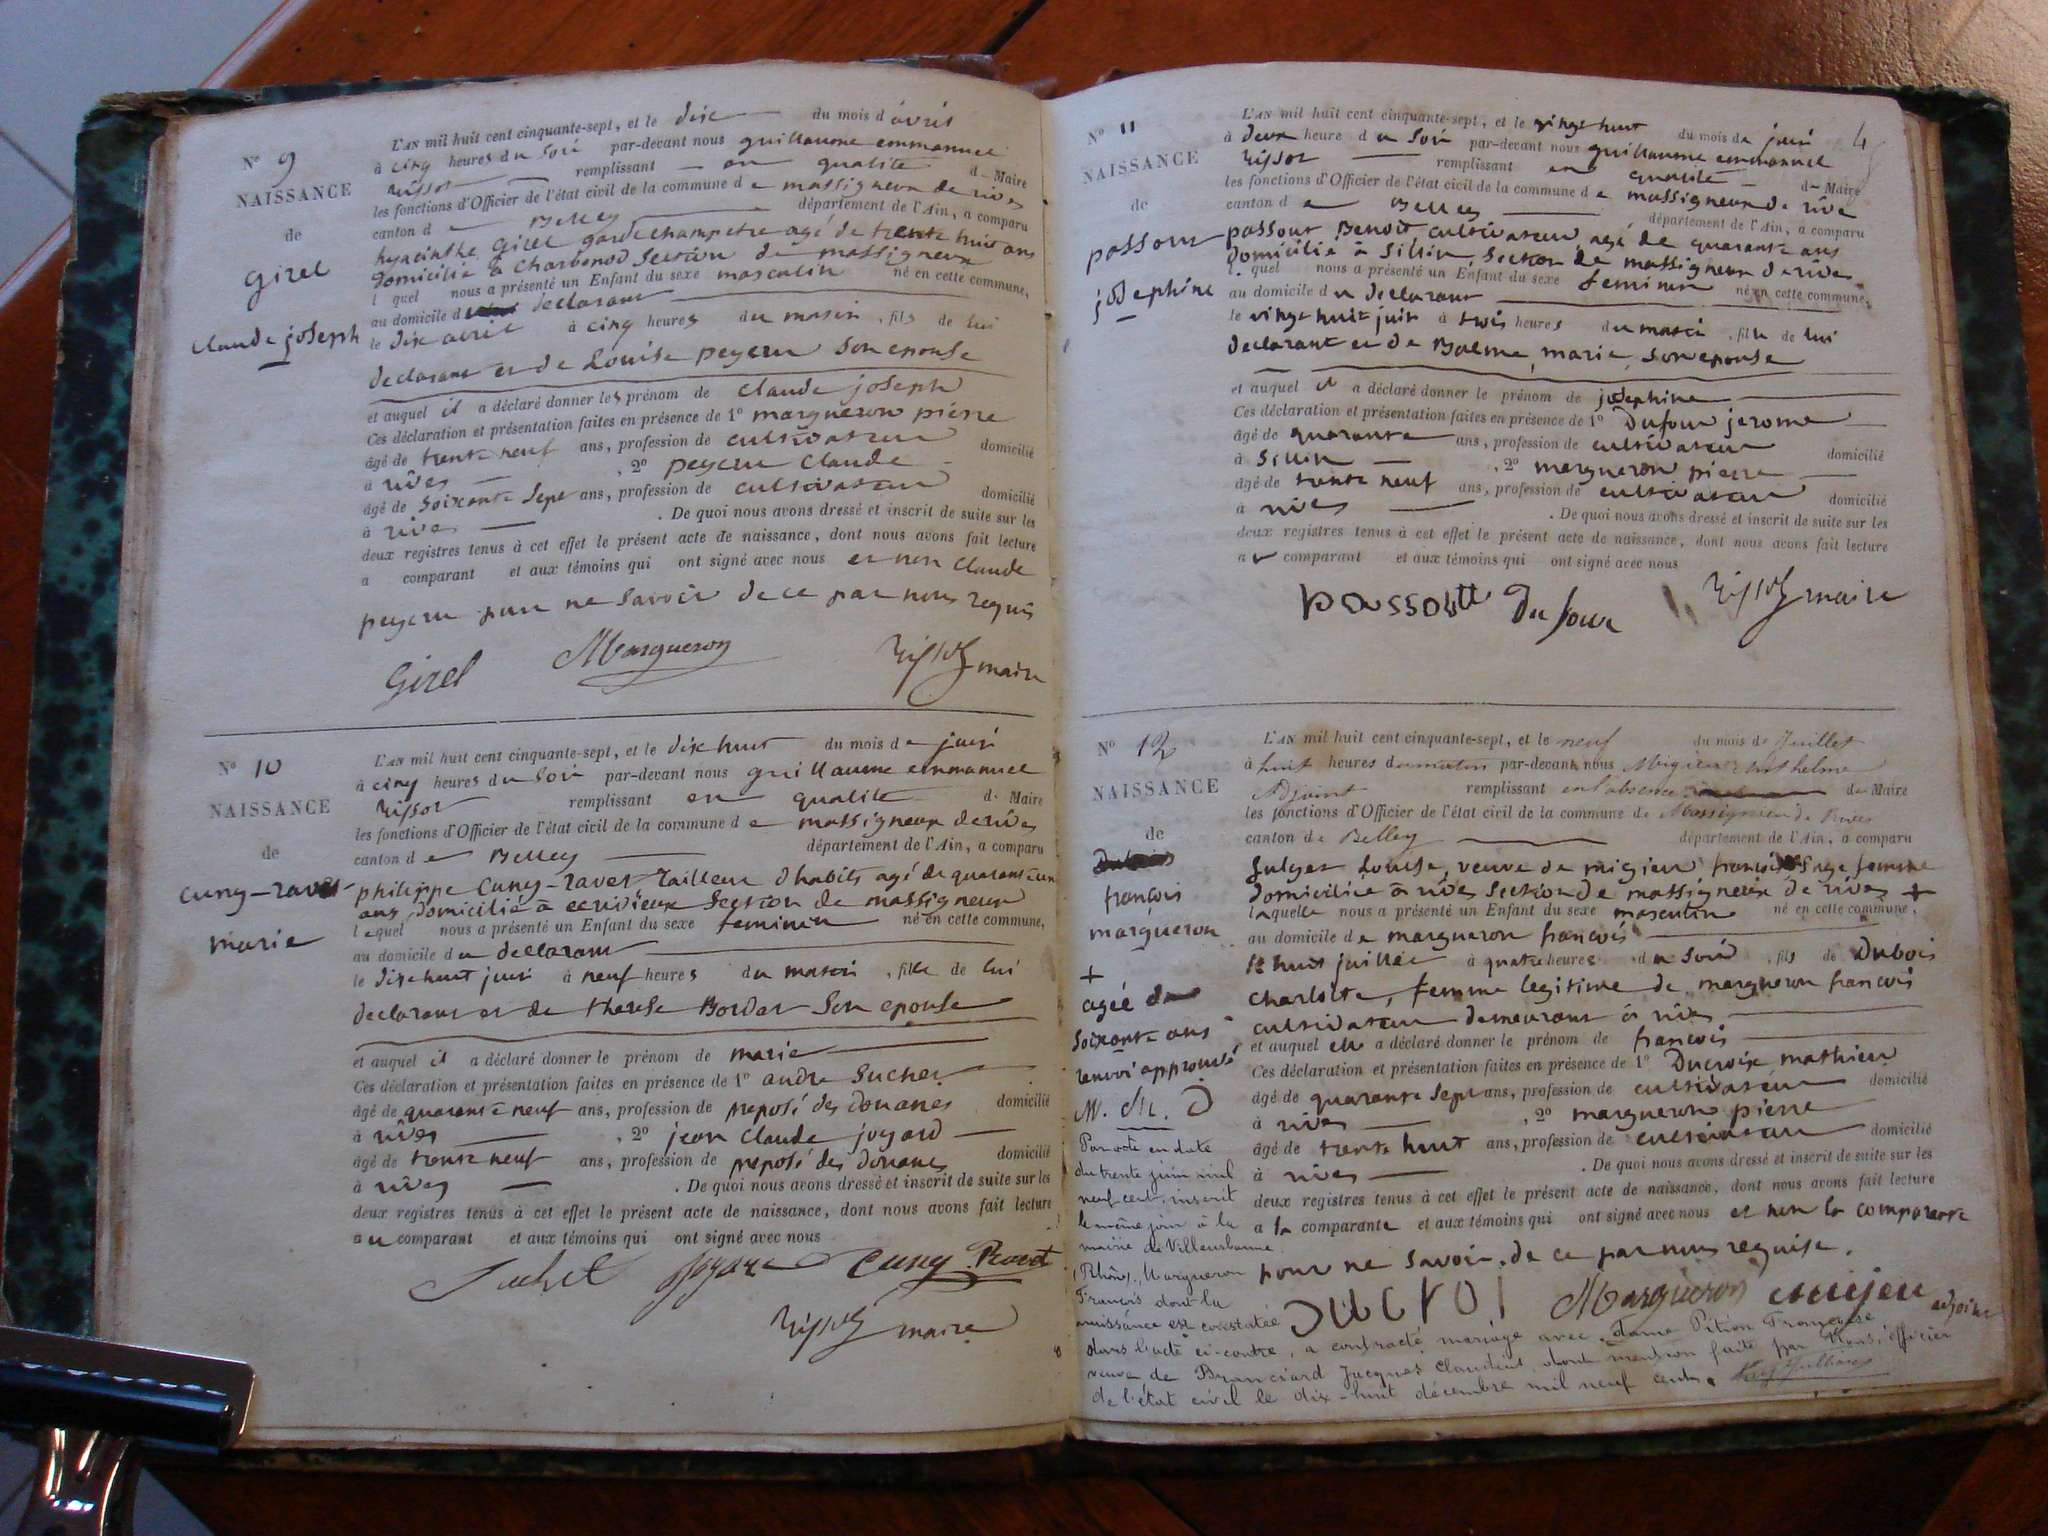 N° 9
NAISSANCE
de
Girel
Claude joseph
L'AN mil huit cent cinquante-sept, et le dix du mois d'avril
à cinq heures du soir par-devant nous guillaume emmanuel
remplissant en qualité d Maire
les fonctions d'Officier de l'état civil de la commune de massigneux de rives
canton de Belley département de l'Ain, a comparu
hyacinthe Girel garde champetre agé de trente huit ans
domicilié à Charbonod Section de massigneux
lequel nous a présenté un Enfant du sexe masculin né en cette commune,
au domicile du declarant
le dix avril à cinq heures du matin, fils de lui
declarant et de Louise peyeru son epouse
et auquel il a déclaré donner les prénom de Claude joseph
Ces déclaration et présentation faites en présence de 1° margueron pierre
âgé de trente neuf ans, profession de cultivateur domicilié
à rives , 2° peyeru Claude
âgé de soixante Sept ans, profession de cultivateur domicilié
à rives . De quoi nous avons dressé et inscrit de suite sur les
deux registres tenus à cet effet le présent acte de naissance, dont nous avons fait lecture
a comparant et aux témoins qui ont signé avec nous et non Claude
peyeru pour ne savoir de ce par nous requis
Girel Margueron maire
N° 10
NAISSANCE
de
Cuny-ravet
marie
L'AN mil huit cent cinquante-sept, et le dix huit du mois de juin
à cinq heures du soir par-devant nous guillaume emmanuel
remplissant en qualité d Maire
les fonctions d'Officier de l'état civil de la commune de massigneux de rives
canton de Belley département de l'Ain, a comparu
philippe Cuny-ravet tailleur d'habits agé de quarante un
ans, domicilié à ecrivieux Section de massigneux
lequel nous a présenté un Enfant du sexe feminin né en cette commune,
au domicile du declarant
le dix huit juin à neuf heures du matin, fille de lui
declarant et de therese Bordet Son epouse
et auquel il a déclaré donner le prénom de marie
Ces déclaration et présentation faites en présence de 1° andre Suchet
âgé de quarante neuf ans, profession de preposé des douanes domicilié
à rives , 2° jean Claude joyard
âgé de trente neuf ans, profession de preposé des douanes domicilié
à rives . De quoi nous avons dressé et inscrit de suite sur les
deux registres tenus à cet effet le présent acte de naissance, dont nous avons fait lecture
au comparant et aux témoins qui ont signé avec nous
Suchet Joyard Cuny Ravet
maire
4
N° 11
NAISSANCE
de
passour
josephine
L'AN mil huit cent cinquante-sept, et le vingt huit du mois de juin
à deux heure du Soir par-devant nous guillaume emmanuel
remplissant en qualité d Maire
les fonctions d'Officier de l'état cicil de la commune de massigneux de rive
canton de Belley département de l'Ain, a comparu
passour Benoit cultivateur, agé de quarante ans
domicilié à Sillin, Section de massigneux de rives
l quel nous a présenté un Enfant du sexe feminin né en cette commune,
au domicile du declarant
le vingt huit juin à trois heures du matin, fille de lui
declarant et de Balme, marie, son epouse
et auquel il a déclaré donner le prénom de josephine
Ces déclaration et présentation faites en présence de 1° Dufour jerome
âgé de quarante ans, profession de cultivateur domicilié
à Sillin , 2° margueron pierre
âgé de trente neuf ans, profession de cultivateur domicilié
à rives . De quoi nous avons dressé et inscrit de suite sur les
deux registres tenus à cet effet le présent acte de naissance, dont nous avons fait lecture
a comparant et aux témoins qui ont signé avec nous
Dufour maire
N° 12
NAISSANCE
de
françois
margueron
+
agée de
soixante ans
renvoi approuvé
M. M. D
Par acte en date
du trente juin mil
neuf cent, inscrit
le même jour à la
mairie de Villeurbanne
(Rhône), Margueron
François dont la
naissance est constatée
L'AN mil huit cent cinquante-sept, et le neuf du mois de Juillet
à huit heures du matin par-devant nous Migieu Anthelme
Adjoint remplissant en l'absence du Maire
les fonctions d'Officier de l'état civil de la commune de Massignieu de Rives
canton de Belley département de l'Ain, a comparu
Julger Louise, veuve de migieu françois Sage femme
domiciliée à rives Section de massigneux de rives +
laquelle nous a présenté un Enfant du sexe masculin né en cette commune,
au domicile de margueron françois
le huit juillet à quatre heures du Soir, fils de Dubois
Charlotte, femme legitime de margueron françois
cultivateur demeurant à rives
et auquel elle a déclaré donner le prénom de françois
Ces déclaration et présentation faites en présence de 1° Ducroix mathieu
âgé de quarante sept ans, profession de cultivateur domicilié
à rives , 2° margueron pierre
âgé de trente huit ans, profession de cultivateur domicilié
à rives . De quoi nous avons dressé et inscrit de suite sur les
deux registres tenus à cet effet le présent acte de naissance, dont nous avons fait lecture
a la comparante et aux témoins qui ont signé avec nous et non la comparante
pour ne savoir, de ce par nous requise.
Ducroi Margueron migieu adjoint
dans l'acte ci-contre, a contracté mariage avec dame Pition Françoise
veuve de Branciard Jacques Claudius, dont mention faite par Nous, officier
de l'état civil le dix-huit décembre mil neuf cent.